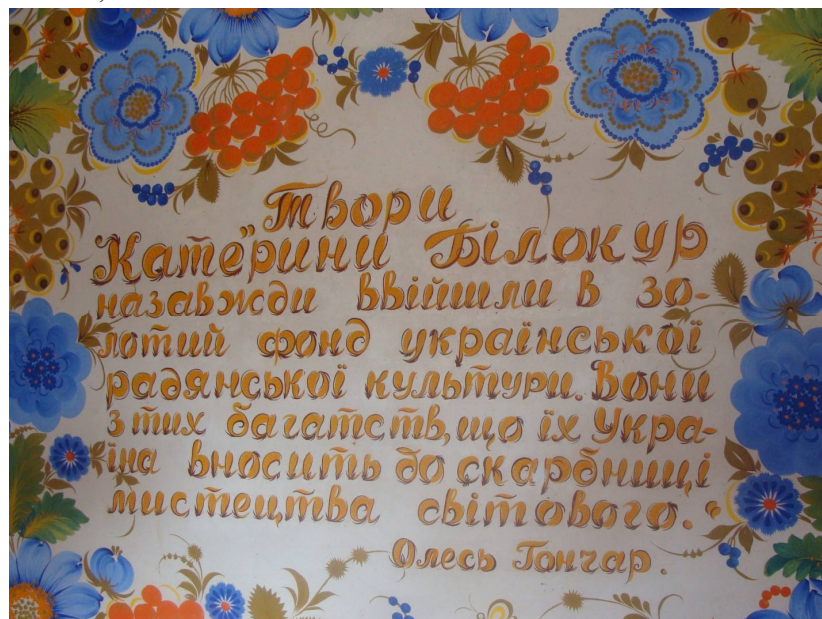 Твори
Кате"рини Білокур
назавжди ввійшли в зо-
лотий фонд української
радянської культури. Вони
з тих багатств, що їх Укра-
їна вносить до скарбниці
мистецтва світового."
Олесь Гончар.